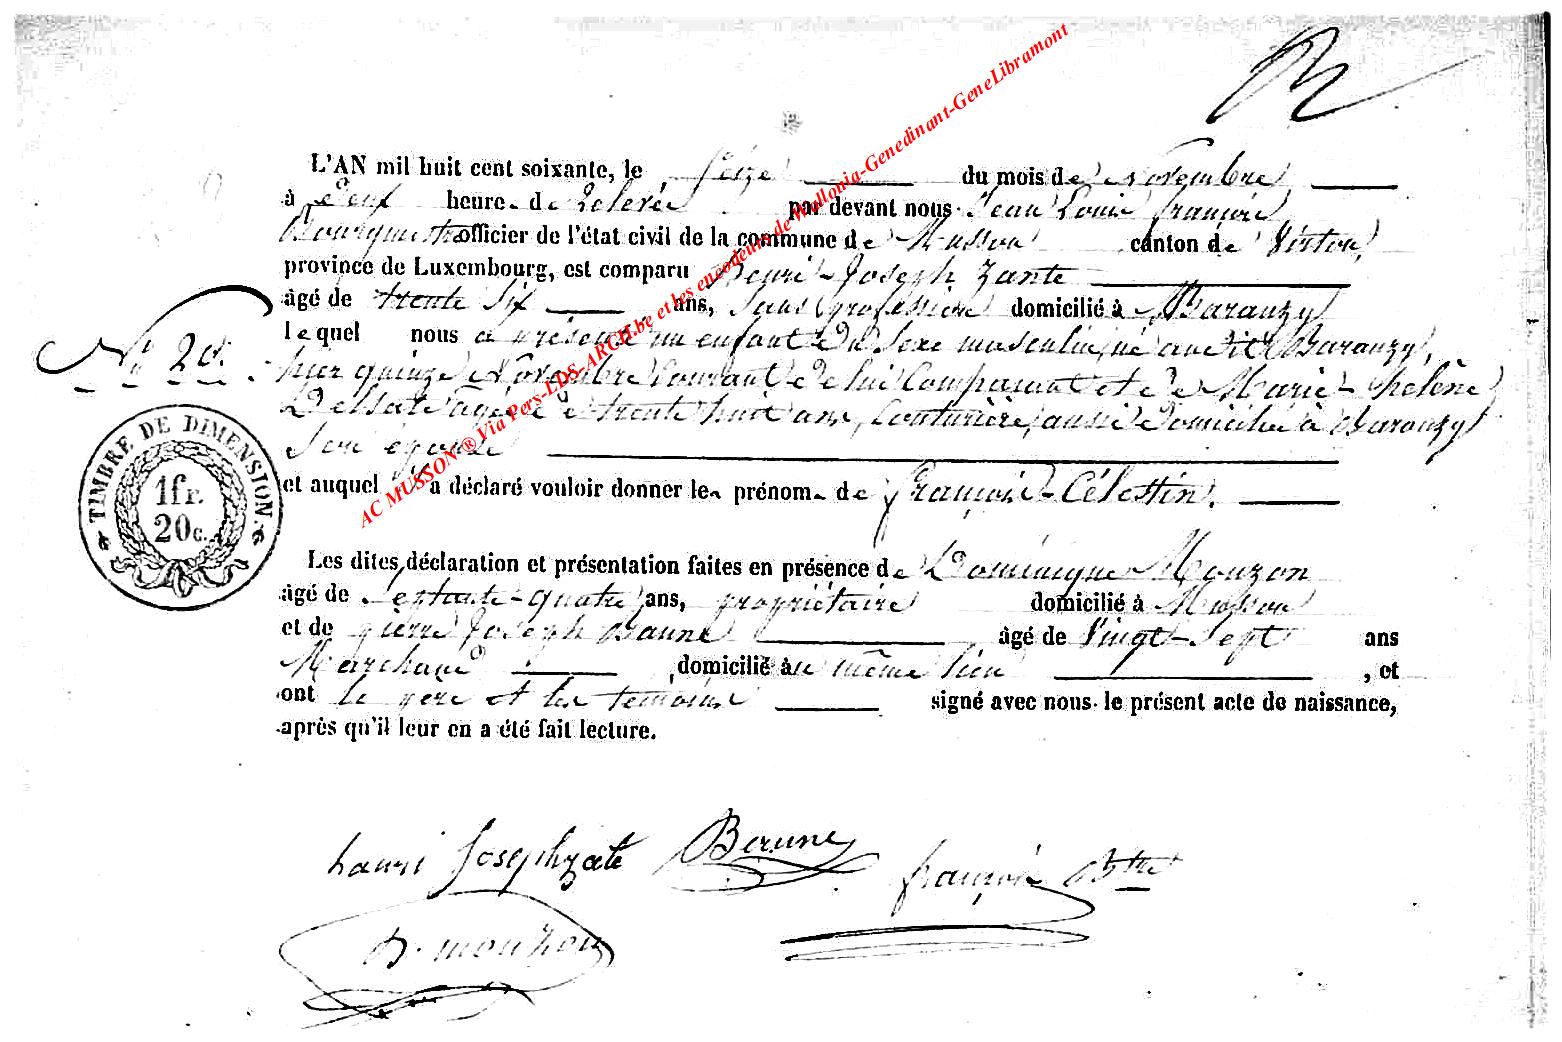 L'AN mil huit cent soixante, le Seize du mois de Novembre
à heure de relevée par devant nous Jean Louis françois
Bourgmestre officier de l'état civil de la commune de Musson canton de Virton,
province de Luxembourg, est comparu Henri-Joseph Zante
âgé de trente six ans, sans profession domicilié à Baranzy
lequel nous a présenté un enfant du sexe masculin, né audit Baranzy,
hier quinze Novembre courant de lui Comparant et de Marie-hélène
âgée de trente huit ans, Couturière, aussi domiciliée à Baranzy
Son épouse
et auquel il a déclaré vouloir donner le prénom de françois-Célestin.
N° 20.
TIMBRE DE DIMENSION.
1fr.
20c.
Les dites déclaration et présentation faites en présence de Dominique Mouzon
âgé de Septante-quatre ans, propriétaire domicilié à Musson
et de pierre Joseph Braune âgé de Vingt-Sept ans
Marchand domicilié au même lieu, et
ont le père et les témoins signé avec nous le présent acte de naissance,
après qu'il leur en a été fait lecture.
henri Josephzate Braune françois Btre
D. mouzon
AC MUSSON ® Via Pers-LDS-ARCH.be et les encodeurs de Wallonia-Genedinant-GeneLibramont